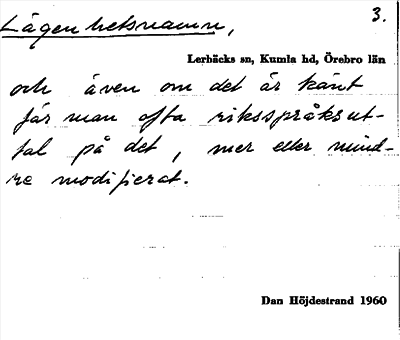 Lägenhetsnamn,
3.
Lerbäcks sn, Kumla hd, Örebro län
och även om det är känt
får man ofta riksspråksut-
tal på det, mer eller mind-
re modifierat.
Dan Höjdestrand 1960